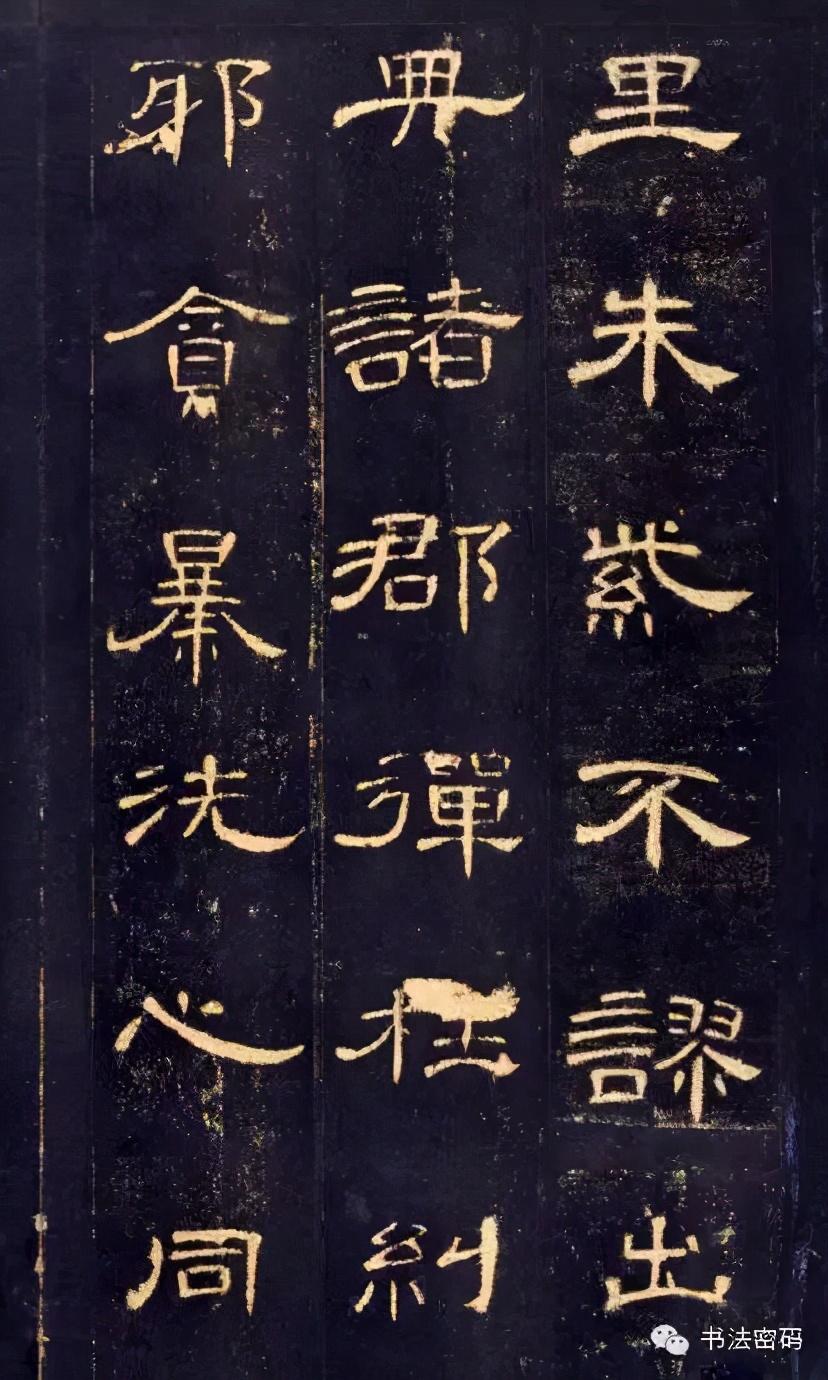 里朱紫不謬出
典諸郡彈枉糾
邪貪暴洗心同
书法密码